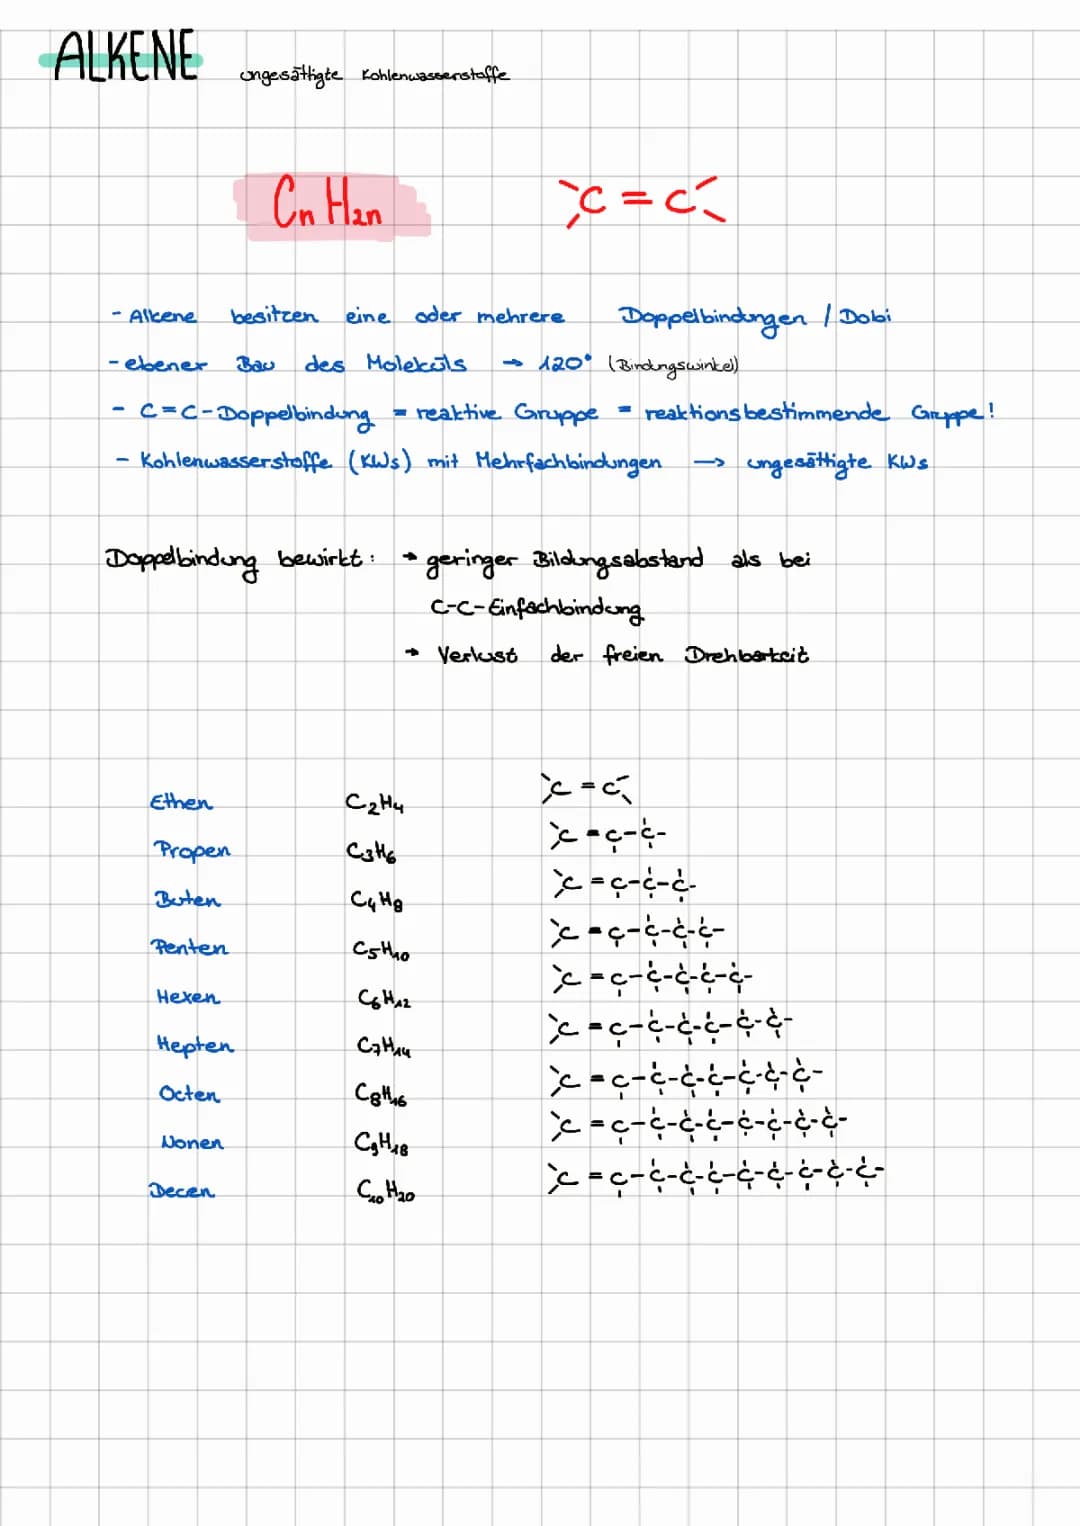 ALKENE ungesättigte Kohlenwasserstoffe
CnH2n >C=C<
- Alkene besitzen eine oder mehrere Doppelbindungen / Dobi
- ebener Bau des Moleküls → 120° (Bindungswinkel)
- C=C-Doppelbindung = reaktive Gruppe = reaktionsbestimmende Gruppe!
- Kohlenwasserstoffe (KWs) mit Mehrfachbindungen → ungesättigte KWs
Doppelbindung bewirkt: → geringer Bildungsabstand als bei
C-C-Einfachbindung
→ Verlust der freien Drehbarkeit
Ethen C2H4 >C=C<
Propen C3H6 >C=C-C-
Buten C4H8 >C=C-C-C-
Penten C5H10 >C=C-C-C-C-
Hexen C6H12 >C=C-C-C-C-C-
Hepten C7H14 >C=C-C-C-C-C-C-
Octen C8H16 >C=C-C-C-C-C-C-C-
Nonen C9H18 >C=C-C-C-C-C-C-C-C-
Decen C10H20 >C=C-C-C-C-C-C-C-C-C-